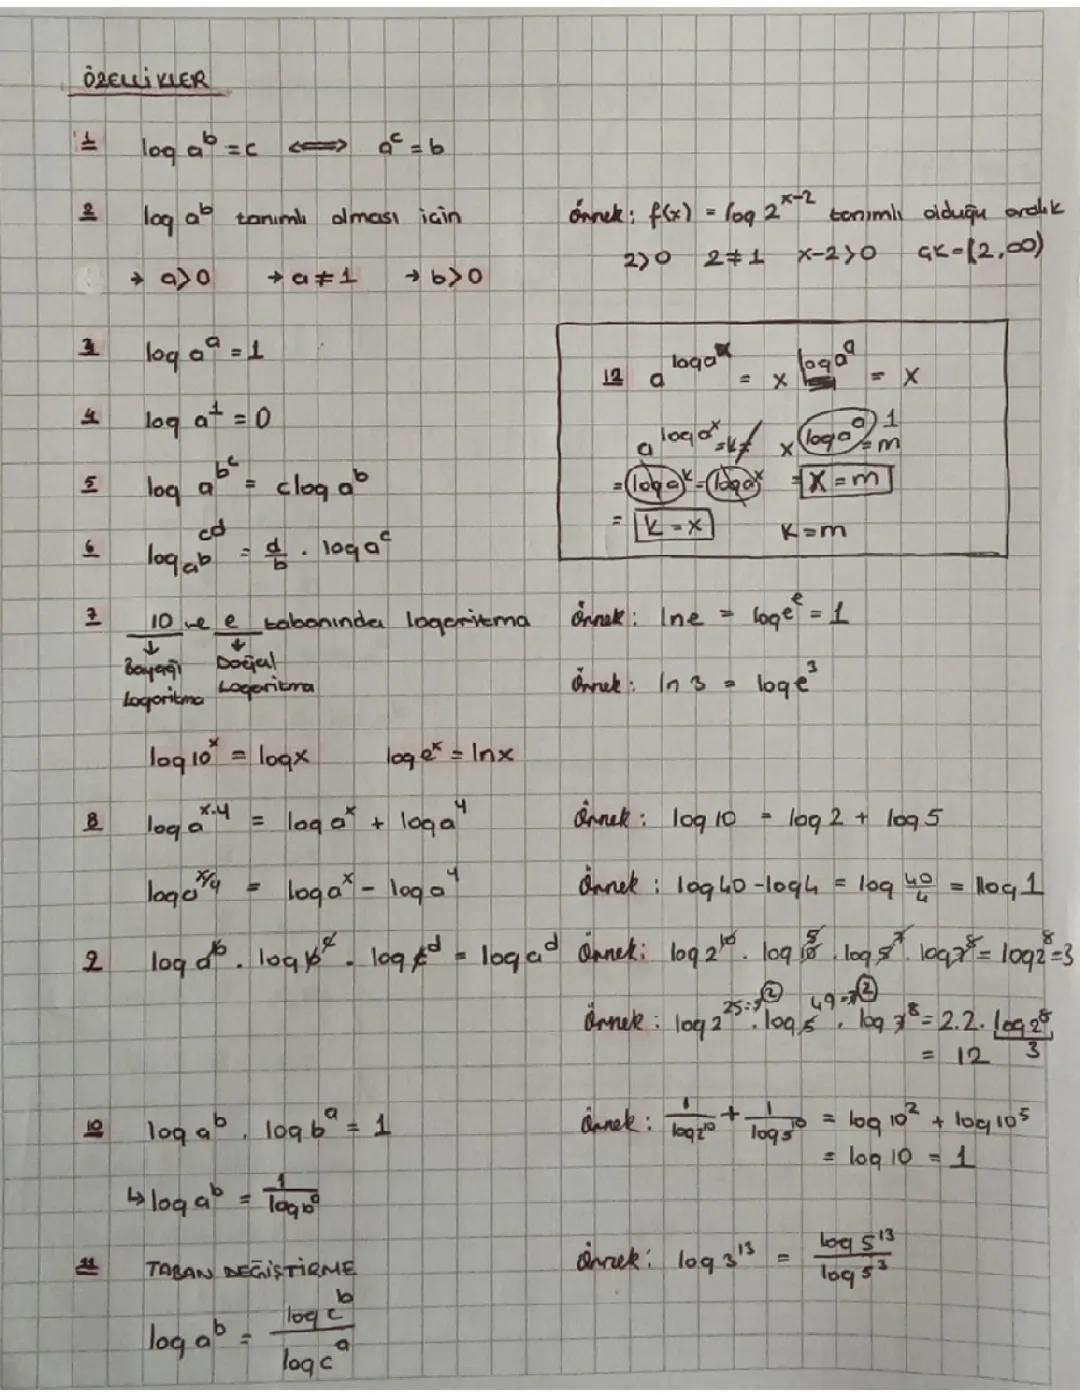 ÖZELLİKLER
1 log a^b = c ⟺ a^c = b
2 log a^b tanımlı olması için
→ a>0 → a≠1 → b>0
Örnek: f(x) = log 2^x-2 tanımlı olduğu aralık
2>0 2≠1 x-2>0 ÇK=(2,∞)
3 log a^a = 1
4 log a^1 = 0
5 log a^b^c = c log a^b
6 log a^b ^cd = d/b . log a^c
12 a^log a^x = x^log a^a = x
a^log a^x = k x^log a^a 1 = m
= log a^k = log a^x = x = m
= k = x k = m
7 10 ve e tabanında logaritma
↓ ↓
Bayağı Doğal
Logaritma Logaritma
Örnek: ln e = log e^e = 1
Örnek: ln 3 = log e^3
log 10^x = log x log e^x = ln x
8 log a^x.y = log a^x + log a^y
Örnek: log 10 = log 2 + log 5
log a^x/y = log a^x - log a^y
Örnek: log 40 - log 4 = log 40/4 = log 1
9 log a^b . log b^c . log c^d = log a^d
Örnek: log 2^10 . log 10^5 . log 5^7 . log 7^8 = log 2^8 = 3
Örnek: log 2^25=5^2 . log 5^49=7^2 . log 7^8 = 2.2. log 2^8
= 12 3
10 log a^b . log b^a = 1
↳ log a^b = 1/log b^a
Örnek: 1/log 2^10 + 1/log 5^10 = log 10^2 + log 10^5
= log 10 = 1
11 TABAN DEĞİŞTİRME
log a^b = log c^b/log c^a
Örnek: log 3^13 = log 5^13/log 5^3